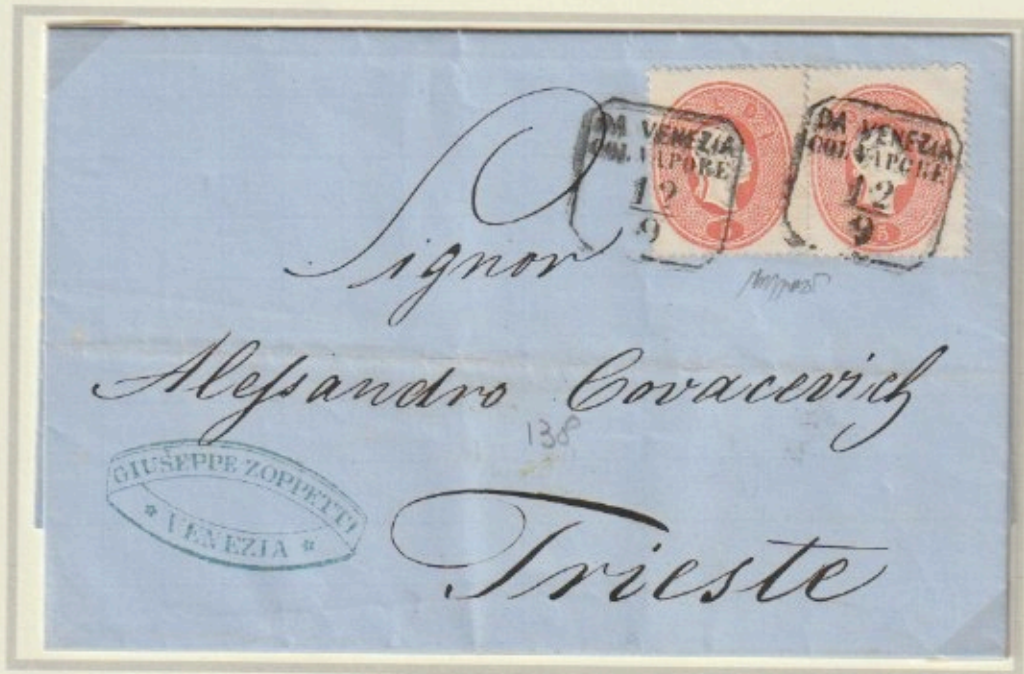 DA VENEZIA
COL VAPORE
12
9
DA VENEZIA
COL VAPORE
12
9
5
Signor
Alessandro Covacevich
138
GIUSEPPE ZOPPETTI
* VENEZIA *
Trieste